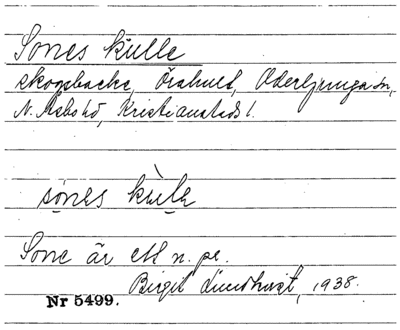 Sones kulle
skogsbacke, Örahult, Oderljunga sn,
N. Åsbo hd, Kristianstads l.
sònes kùlle
Sone är ett n. pr.
Birgit Lundkvist, 1938.
Nr 5499.